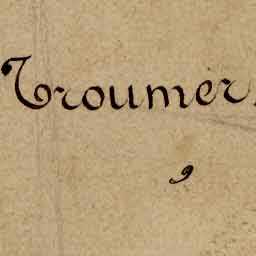 Troumer.
9